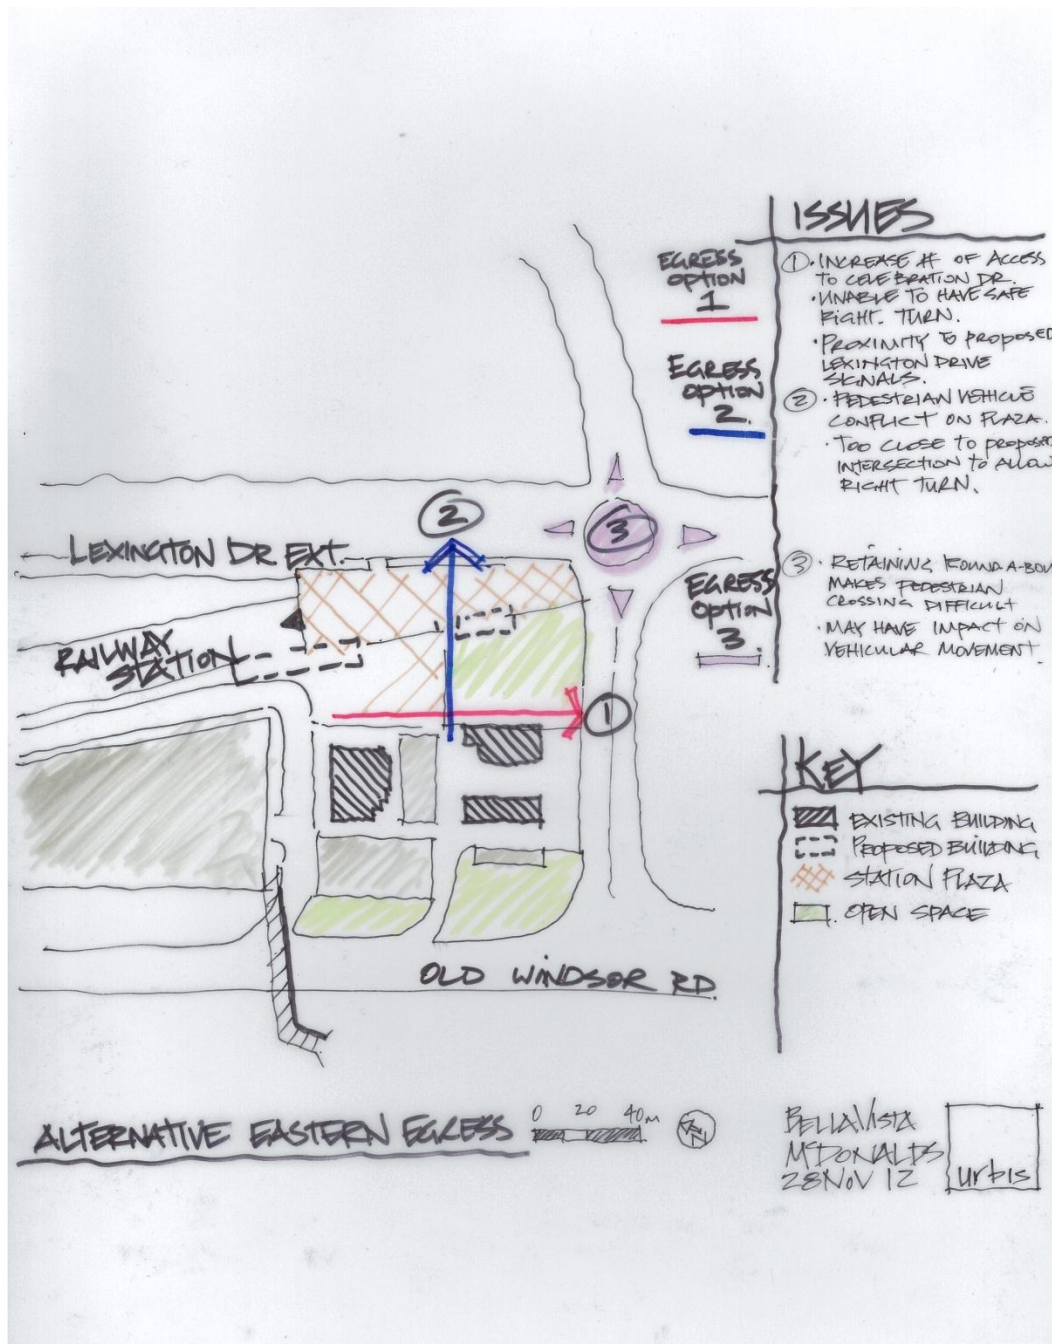 ISSUES
EGRESS
OPTION
1
EGRESS
OPTION
2.
EGRESS
OPTION
3.
① · INCREASE # OF ACCESS
TO CELEBRATION DR.
· UNABLE TO HAVE SAFE
RIGHT. TURN.
· PROXIMITY TO PROPOSED
LEXINGTON DRIVE
SIGNALS.
② · PEDESTRIAN VEHICLE
CONFLICT ON PLAZA.
· TOO CLOSE TO PROPOSED
INTERSECTION TO ALLOW
RIGHT TURN.
③ · RETAINING ROUND-A-BOU
MAKES PEDESTRIAN
CROSSING DIFFICULT
· MAY HAVE IMPACT ON
VEHICULAR MOVEMENT.
②
③
LEXINGTON DR EXT.
RAILWAY
STATION
①
KEY
EXISTING BUILDING
PROPOSED BUILDING
STATION PLAZA
OPEN SPACE
OLD WINDSOR RD.
ALTERNATIVE EASTERN EGRESS
0 20 40m
N
BELLA VISTA
McDONALDS
28 NOV 12
urbis